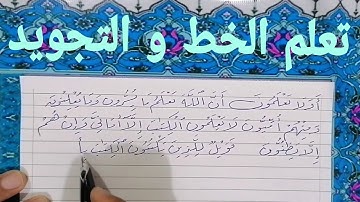 تعلم الخط و التجويد
أَوَلَا يَعْلَمُونَ أَنَّ اللَّهَ يَعْلَمُ مَا يُسِرُّونَ وَمَا يُعْلِنُونَ
وَمِنْهُمْ أُمِّيُّونَ لَا يَعْلَمُونَ الْكِتَٰبَ إِلَّا أَمَانِيَّ وَإِنْ هُمْ
إِلَّا يَظُنُّونَ فَوَيْلٌ لِلَّذِينَ يَكْتُبُونَ الْكِتَٰبَ بِأَ